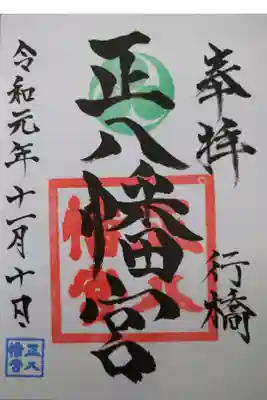 奉拝
行橋
正八幡宮
令和元年十一月十日
正八
幡宮
正八
幡宮